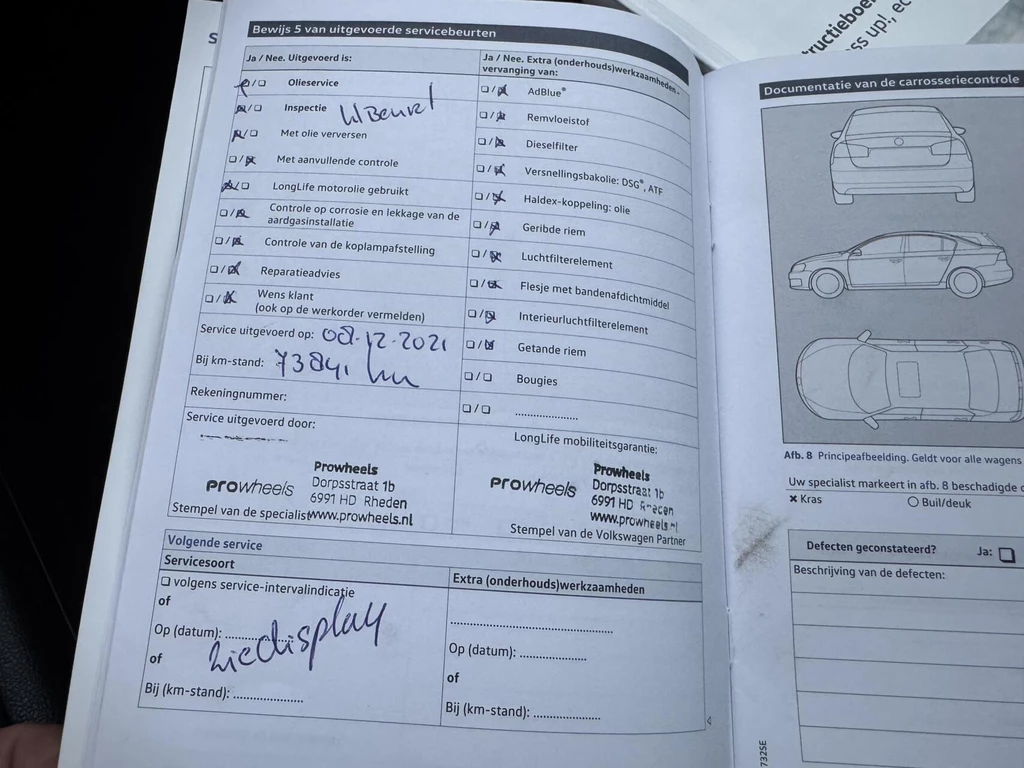 Bewijs 5 van uitgevoerde servicebeurten
Ja / Nee. Uitgevoerd is:
Olieservice
Inspectie
Met olie verversen
Met aanvullende controle
LongLife motorolie gebruikt
Controle op corrosie en lekkage van de
aardgasinstallatie
Controle van de koplampafstelling
Reparatieadvies
Wens klant
(ook op de werkorder vermelden)
Service uitgevoerd op: 08-12-2021
Bij km-stand: 73841 km
Rekeningnummer:
Service uitgevoerd door:
prowheels
Prowheels
Dorpsstraat 1b
6991 HD Rheden
www.prowheels.nl
Stempel van de specialist
Ja / Nee. Extra (onderhouds)werkzaamheden -
vervanging van:
AdBlue®
Remvloeistof
Dieselfilter
Versnellingsbakolie: DSG®, ATF
Haldex-koppeling: olie
Geribde riem
Luchtfilterelement
Flesje met bandenafdichtmiddel
Interieurluchtfilterelement
Getande riem
Bougies
LongLife mobiliteitsgarantie:
prowheels
Prowheels
Dorpsstraat 1b
6991 HD Rheden
www.prowheels.nl
Stempel van de Volkswagen Partner
Volgende service
Servicesoort
volgens service-intervalindicatie
of
Op (datum):
zie display
of
Bij (km-stand):
Extra (onderhouds)werkzaamheden
Op (datum):
of
Bij (km-stand):
Documentatie van de carrosseriecontrole
Afb. 8 Principeafbeelding. Geldt voor alle wagens
Uw specialist markeert in afb. 8 beschadigde
Kras
Buil/deuk
Defecten geconstateerd?
Ja:
Beschrijving van de defecten:
732SE